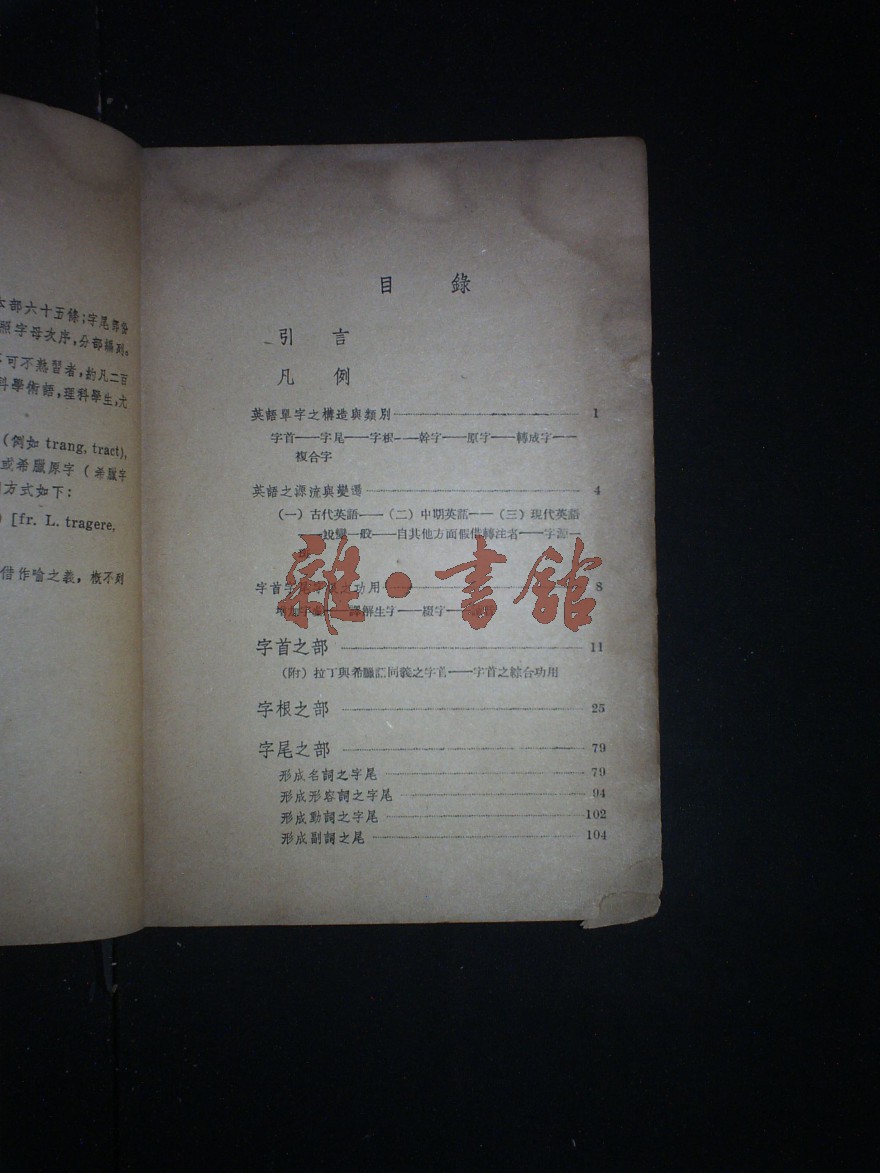 本部六十五條;字尾部份
照字母次序,分部編列。
可不熟習者,約凡二百
科學術語,理科學生,尤
(例如 trang, tract),
或希臘原字(希臘字
方式如下:
) [fr. L. tragere,
借作喻之義,概不列
目 錄
引 言
凡 例
英語單字之構造與類別 1
字首——字尾——字根——幹字——原字——轉成字——
複合字
英語之源流與變遷 4
(一)古代英語——(二)中期英語——(三)現代英語
——說變一般——自其他方面假借轉注者——字源一
字首字尾字根之功用 8
增加字彙——譯解生字——綴字——
雜·書館
字首之部 11
(附)拉丁與希臘語同義之字首——字首之綜合功用
字根之部 25
字尾之部 79
形成名詞之字尾 79
形成形容詞之字尾 94
形成動詞之字尾 102
形成副詞之尾 104